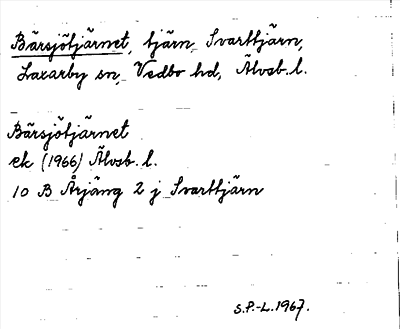 Bärsjötjärnet, tjärn, Svarttjärn,
Laxarby sn, Vedbo hd, Älvsb. l.
Bärsjötjärnet
ek (1966) Älvsb. l.
10 B Årjäng 2 j Svarttjärn
S.P.-L. 1967.